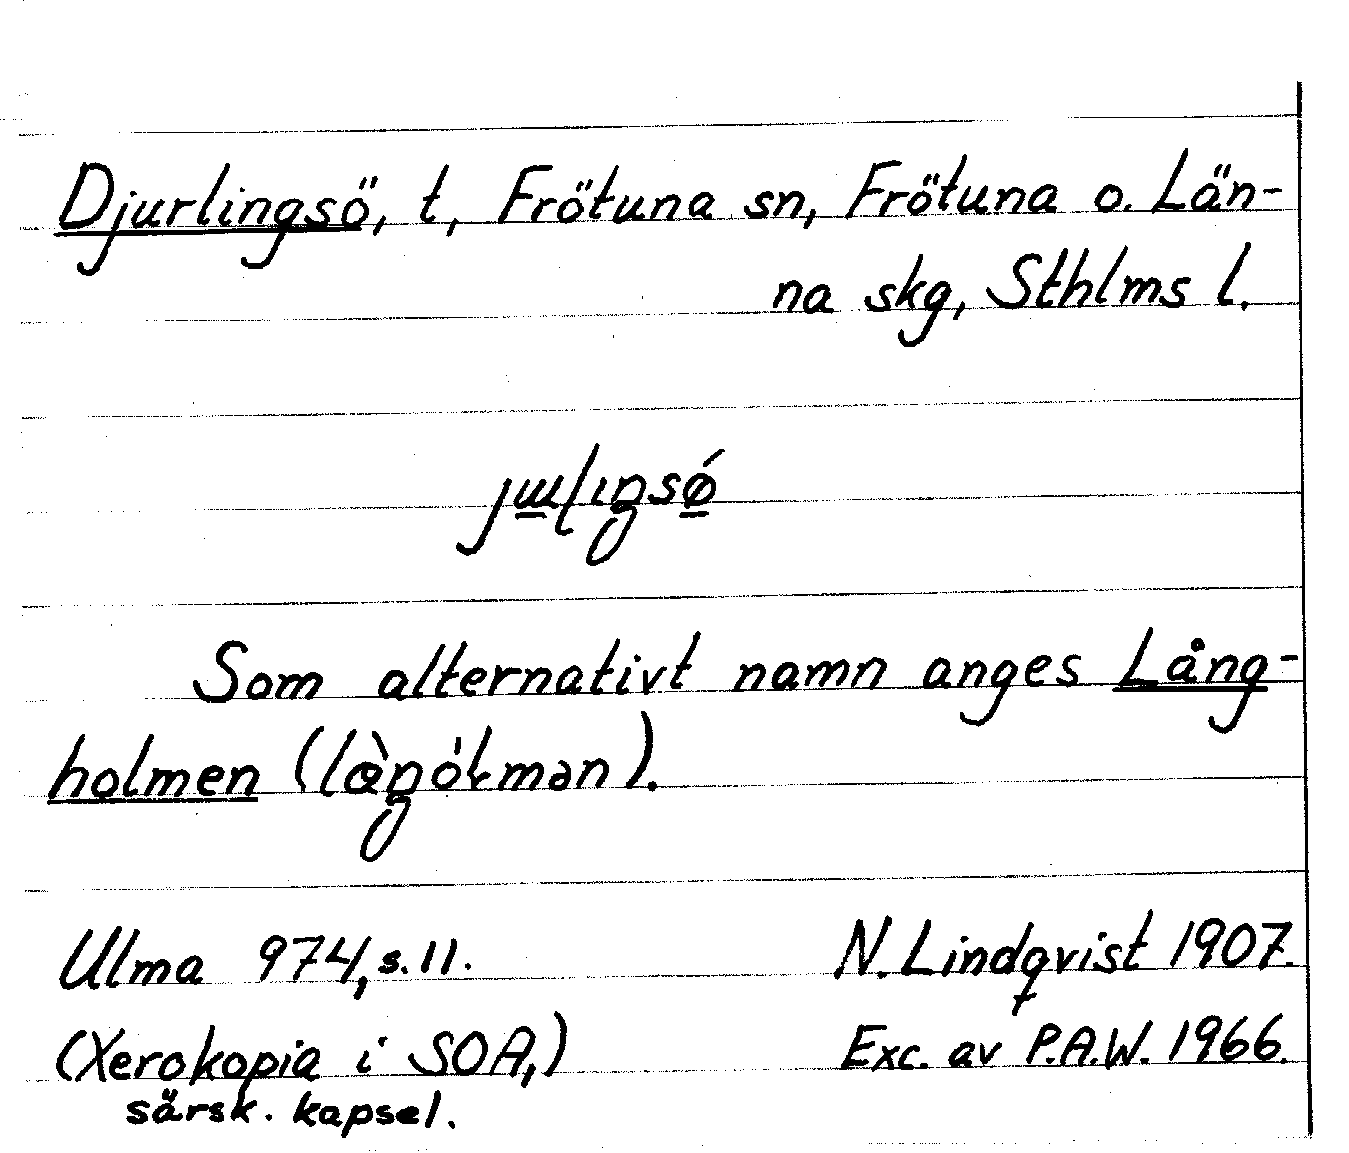 Djurlingsö, t, Frötuna sn, Frötuna o. Län-
na skg, Sthlms l.
Som alternativt namn anges Lång-
holmen
Ulma 974, s. 11.
N. Lindqvist 1907.
(Xerokopia i SOA,)
Exc. av P.A.W. 1966.
särsk. kapsel.